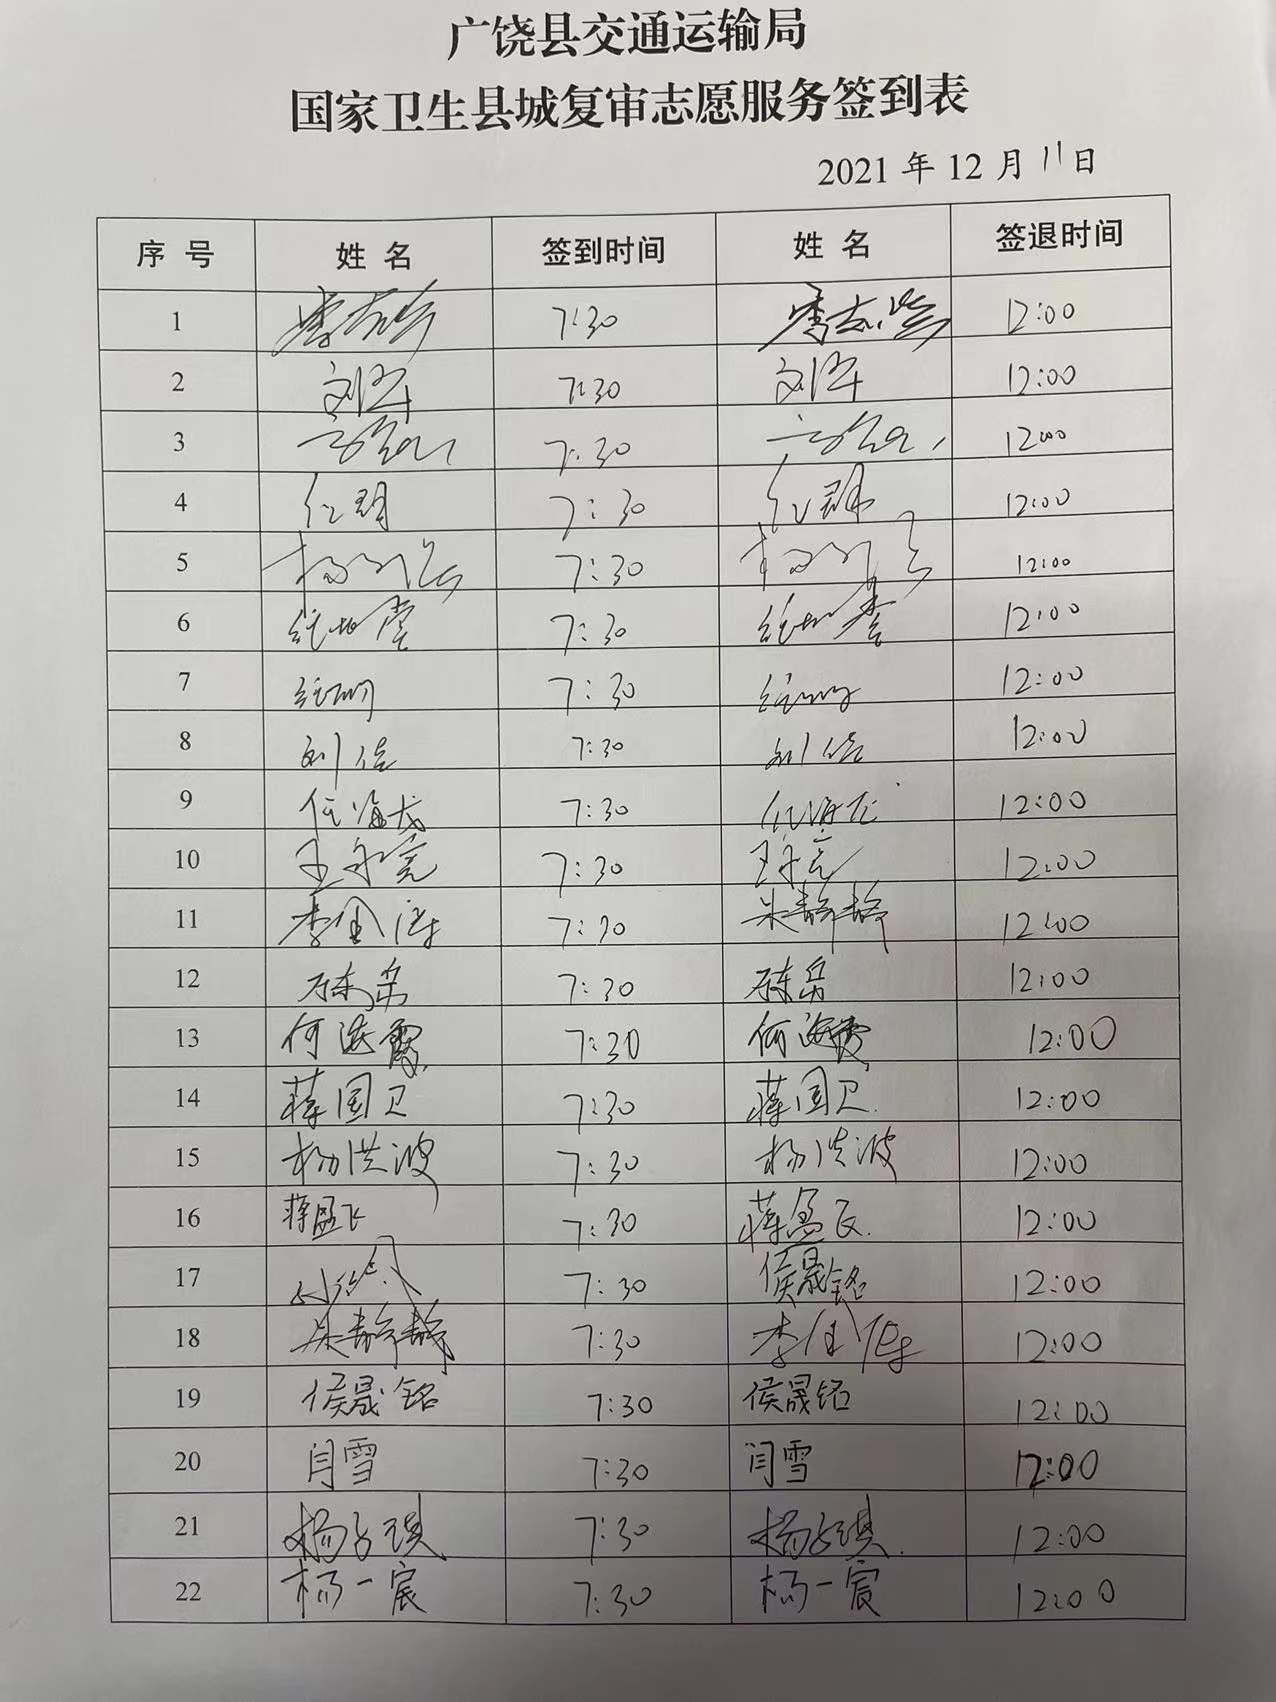 广饶县交通运输局
国家卫生县城复审志愿服务签到表
2021 年 12 月 11 日
序 号 姓 名 签到时间 姓 名 签退时间
1 7:30 12:00
2 刘军 7:30 刘军 12:00
3 7:30 12:00
4 7:30 12:00
5 7:30 12:00
6 7:30 12:00
7 7:30 12:00
8 刘信 7:30 刘信 12:00
9 任海龙 7:30 任海龙 12:00
10 王永亮 7:30 王永亮 12:00
11 李金涛 7:30 朱静静 12:00
12 7:30 12:00
13 何海霞 7:30 何海霞 12:00
14 蒋国卫 7:30 蒋国卫 12:00
15 杨洪波 7:30 杨洪波 12:00
16 蒋孟飞 7:30 蒋孟飞 12:00
17 7:30 侯晟铭 12:00
18 朱静静 7:30 李金涛 12:00
19 侯晟铭 7:30 侯晟铭 12:00
20 闫雪 7:30 闫雪 12:00
21 杨子琪 7:30 杨子琪 12:00
22 杨一宸 7:30 杨一宸 12:00